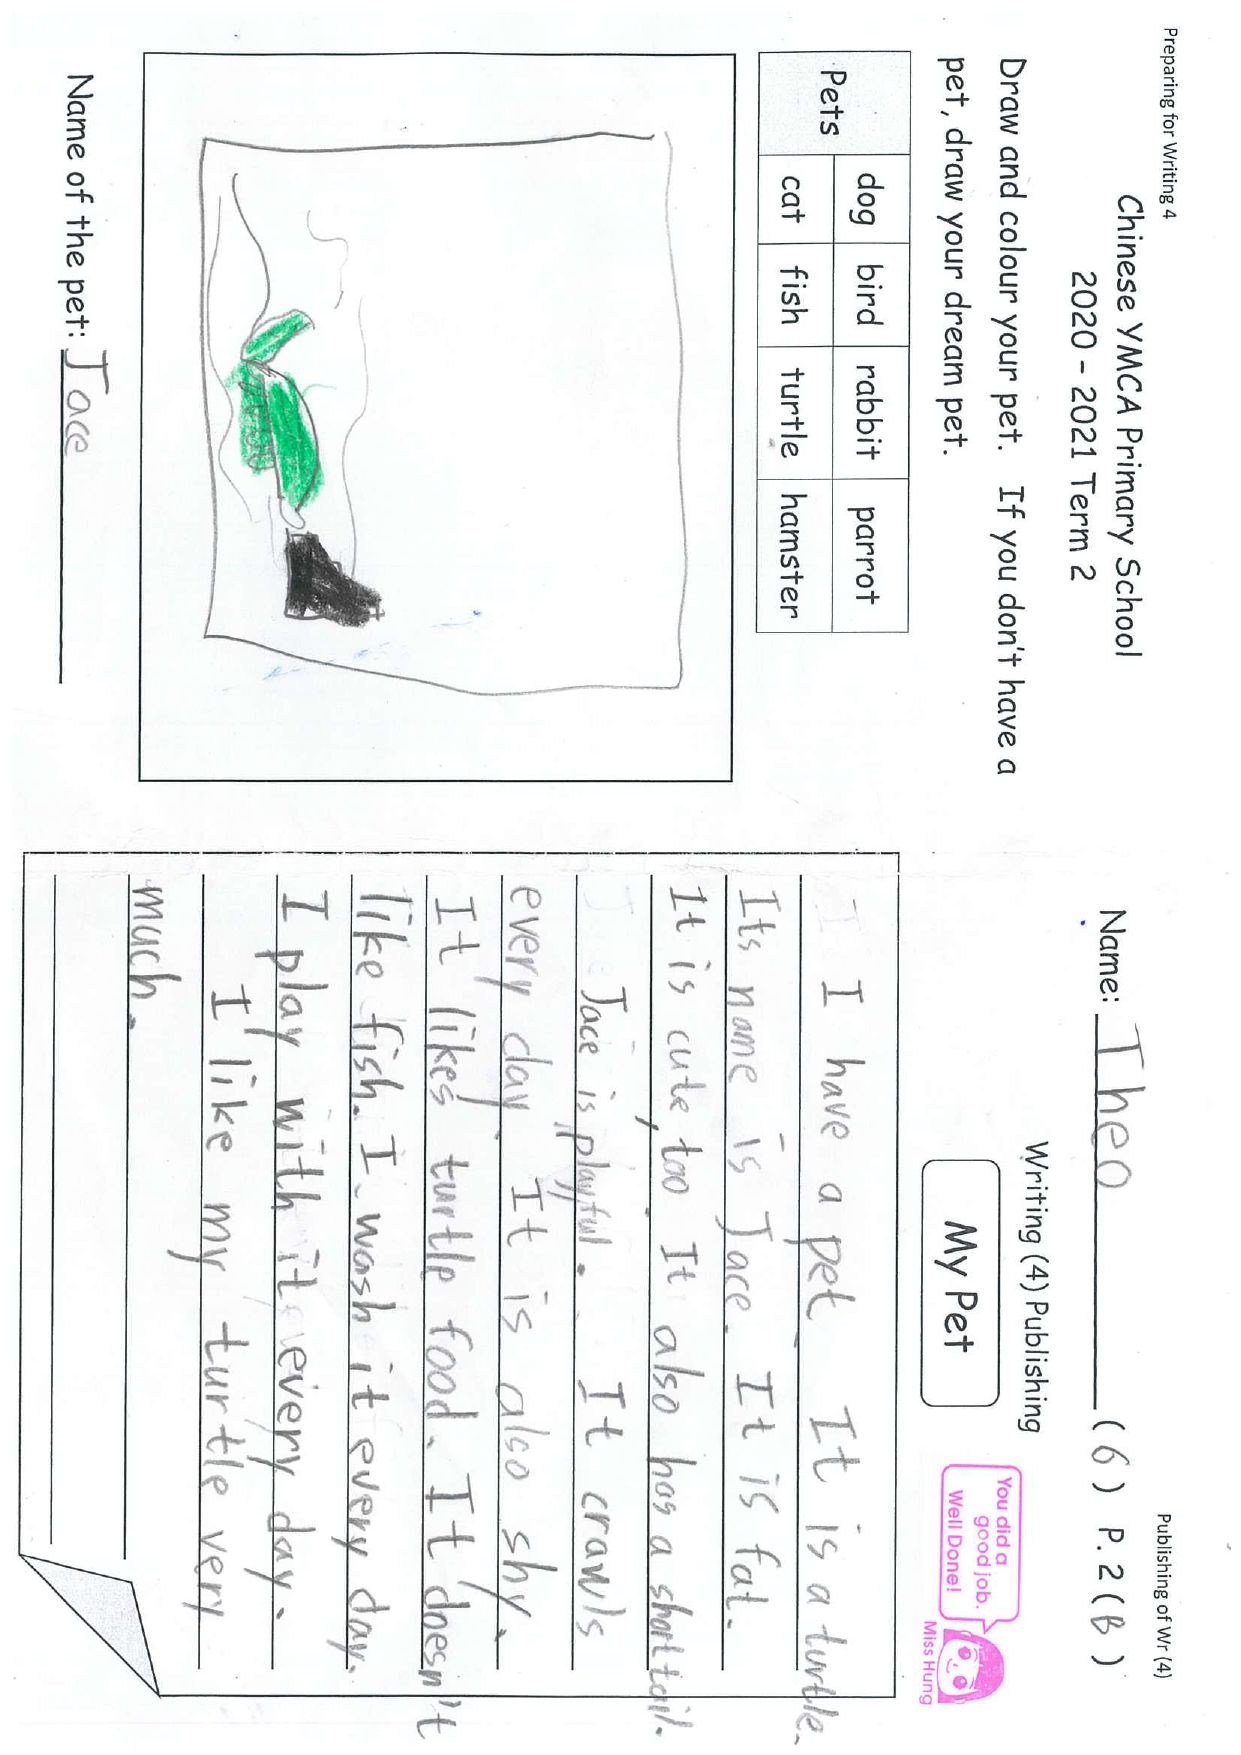 Preparing for Writing 4
Chinese YMCA Primary School
2020 - 2021 Term 2
Draw and colour your pet. If you don't have a
pet, draw your dream pet.
Pets
dog bird rabbit parrot
cat fish turtle hamster
Name of the pet: Jace
Publishing of Wr (4)
Name: Theo (6) P.2 (B)
Writing (4) Publishing
My Pet
You did a
good job.
Well Done!
Miss Hung
I have a pet. It is a turtle.
Its name is Jace. It is fat.
It is cute, too. It also has a short tail.
Jace is playful. It crawls
every day. It is also shy.
It likes turtle food. It doesn't
like fish. I wash it every day.
I play with it every day.
I like my turtle very
much.